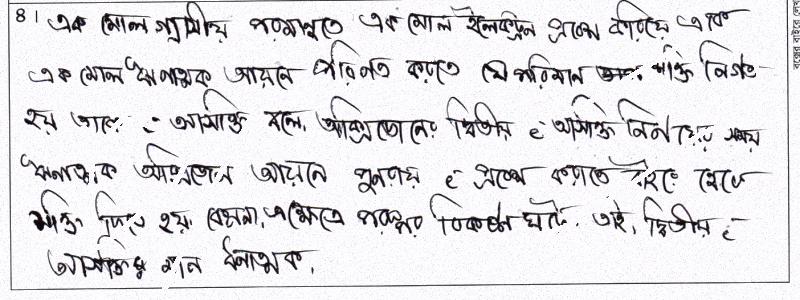 ৪। এক মোল গ্যাসীয় পরমাণুতে এক মোল ইলেকট্রন প্রবেশ করিয়ে একে
এক মোল ঋণাত্মক আয়নে পরিণত করতে যে পরিমান শক্তি নির্গত
হয় তাকে e⁻ আসক্তি বলে। অক্সিজেনের দ্বিতীয় e⁻ আসক্তি নির্ণয়ের সময়
ঋনাত্মক অক্সিজেন আয়নে পুনরায় e⁻ প্রবেশ করাতে বাইরে থেকে
শক্তি দিতে হয়। কেননা, এক্ষেত্রে পরস্পর বিকর্ষণ ঘটে। তাই, দ্বিতীয় e⁻
আসক্তির মান ধনাত্মক।